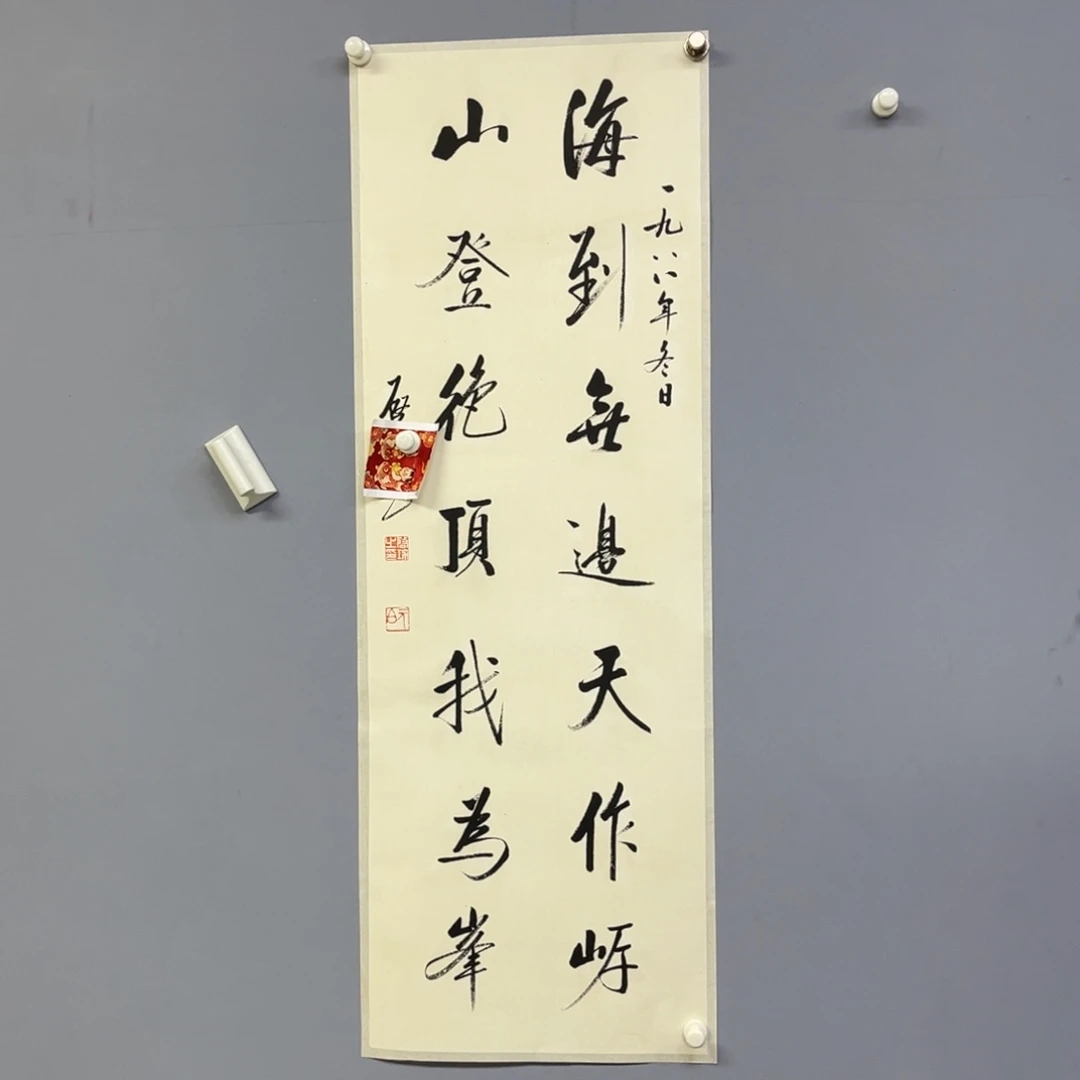 一九八八年冬日
海到無邊天作岸
山登絕頂我為峯
元白